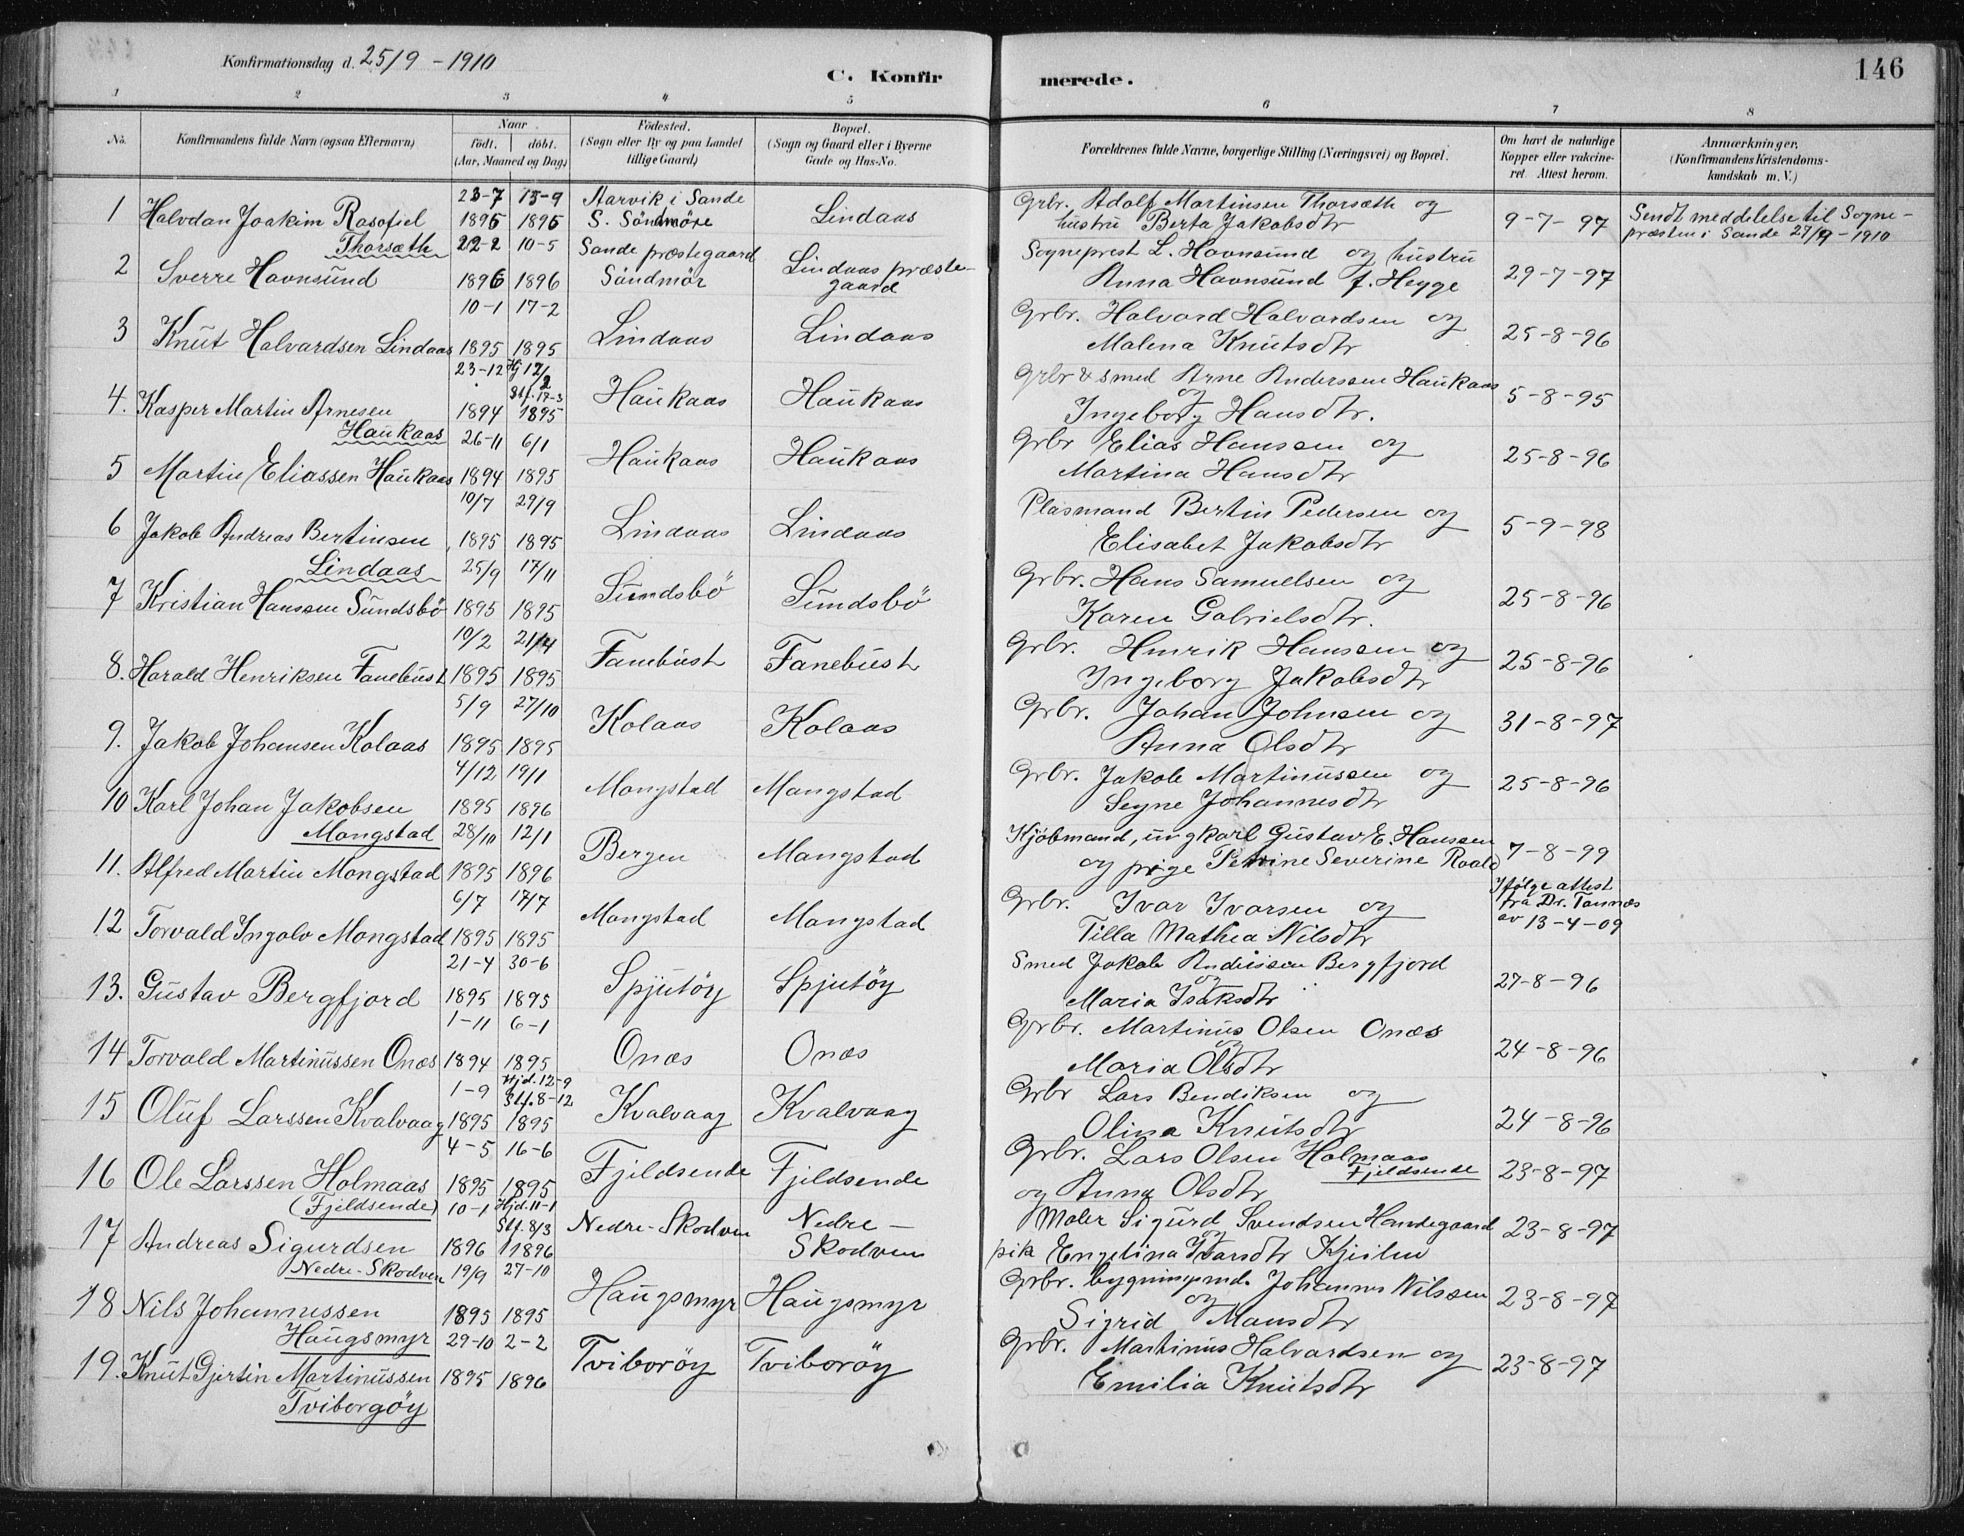 Konfirmationsdag d. 25/9 - 1910
C. Konfirmerede.
146
1 2 3 4 5 6 7 8
No. Konfirmandens fulde Navn (ogsaa Efternavn) Naar født. døbt. (Aar, Maaned og Dag) Fødested. (Sogn eller By og paa Landet tillige Gaard) Bopæl. (Sogn og Gaard eller i Byerne Gade og Hus-No. Forældrenes fulde Navne, borgerlige Stilling (Næringsvei) og Bopæl. Om havt de naturlige Kopper eller vakcineret. Attest herom. Anmærkninger. (Konfirmandens Kristendomskundskab m. V.)
23-7 13-9 Aarvik i Sande Grbr. Adolf Martinsen Thorsæth og
1 Halvdan Joakim Rasofiel 1896 1896 S. Söndmöre Lindaas hustru Berta Jakobsdtr 9-7-97 Sendt meddelelse til Sogne-
Thorsæth præsten i Sande 27/9-1910
22-2 10-5 Sande præstegaard Lindaas præste- Sogneprest L. Havnsund og hustru
2 Sverre Havnsund 1896 1896 Söndmör gaard Anna Havnsund f. Heyge 29-7-97
10-1 17-2 Grbr. Halvard Halvardsen og
3 Knut Halvardsen Lindaas 1895 1895 Lindaas Lindaas Malena Knutsdtr 25-8-96
23-12 Hj 12/2 Stf. 17-3 Grbr & smed Arne Anderssen Haukaas
4. Kasper Martin Arnesen 1894 1895 Haukaas Haukaas og Ingeborg Hansdtr. 5-8-95
Haukaas
26-11 6/1 Grbr Elias Hanssen og
5 Martin Eliassen Haukaas 1894 1895 Haukaas Haukaas Martina Hansdtr 25-8-96
10/7 29/9 Plasmand Bertin Pedersen og
6 Jakob Andreas Bertinsen 1895 1895 Lindaas Lindaas Elisabet Jakobsdtr 5-9-98
Lindaas
25/9 17/11 Grbr. Hans Samuelsen og
7 Kristian Hanssen Sundsbö 1895 1895 Sundsbö Sundsbö Karen Gabrielsdtr. 25-8-96
19/2 21/4 Grbr. Henrik Hanssen og
8. Harald Henriksen Fanebust 1895 1895 Fanebust Fanebust Ingeborg Jakobsdtr 25-8-96
5/9 27/10 Grbr. Johan Johnsen og
9. Jakob Johansen Kolaas 1895 1895 Kolaas Kolaas Anna Olsdtr 31-8-97
4/12 19/1 Grbr. Jakob Martinussen og
10 Karl Johan Jakobsen 1895 1896 Mongstad Mangstad Segne Johannesdtr 25-8-96
Mongstad
28/10 12/1 Kjöbmand, ungkarl Gustav E. Hanssen
11. Alfred Martin Mongstad 1895 1896 Bergen Mangstad og pige Petrine Severine Roald 7-8-99
6/7 17/7 Grbr. Ivar Ivarsen og Ifölge attest
12 Torvald Ingolv Mongstad 1895 1895 Mangstad Mangstad Tilla Mathea Nilsdtr fra Dr. Tannæs
av 13-4-09
21-4 30-6 Smed Jakob Andersen Bergfjord
13. Gustav Bergfjord 1895 1895 Spjutöy Spjutöy og Maria Isaksdtr 27-8-96
1-11 6-1 Grbr. Martinus Olsen Onæs
14 Torvald Martinussen Onæs 1894 1895 Onæs Onæs og Maria Olsdtr 24-8-96
1-9 Hjd. 12-9 Stf. 8-12 Grbr Lars Bendiksen og
15 Oluf Larssen Kvalvaag 1895 1895 Kvalvaag Kvalvaag Olina Knutsdtr 24-8-96
4-5 16-6 Grbr. Lars Olsen Holmaas
16 Ole Larssen Holmaas 1895 1895 Fjeldsende Fjeldsende Fjeldsende 23-8-97
(Fjeldsende) og Anna Olsdtr
10-1 Hjd. 11-1 Stf. 8/3 Nedre-Skodven Nedre- Maler Sigurd Svendsen Handegaard
17 Andreas Sigurdsen 1896 1896 Skodven og pik Engelina Ivarsdtr Kjeilen 23-8-97
Nedre-Skodven
19/9 27-10 Grbr. Johannes Nilssen
18 Nils Johannessen 1895 1895 Haugsmyr Haugsmyr og Sigrid Monsdtr 23-8-97
Haugsmyr
29-10 2-2 Grbr. Martinus Halvardsen og
19. Knut Gjertin Martinussen 1895 1896 Tviboröy Tviboröy Emilia Knutsdtr 23-8-97
Tviborgöy